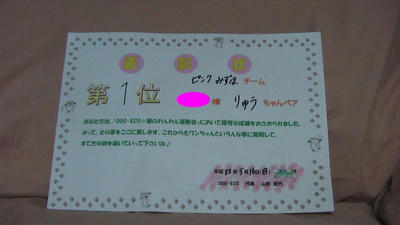 表彰状
ピンク みずほ チーム
第 1 位 様 りゅう ちゃんペア
あなた方は、「DOG-ECO☆春のわんわん運動会」において優秀な成績をおさめられました。
よって、その事をここに賞します。これからもワンちゃんといろんな事に挑戦して、
すてきな絆を築いていって下さいね♪
平成 22年 5月 16日(日)
DOG-ECO 代表 山形